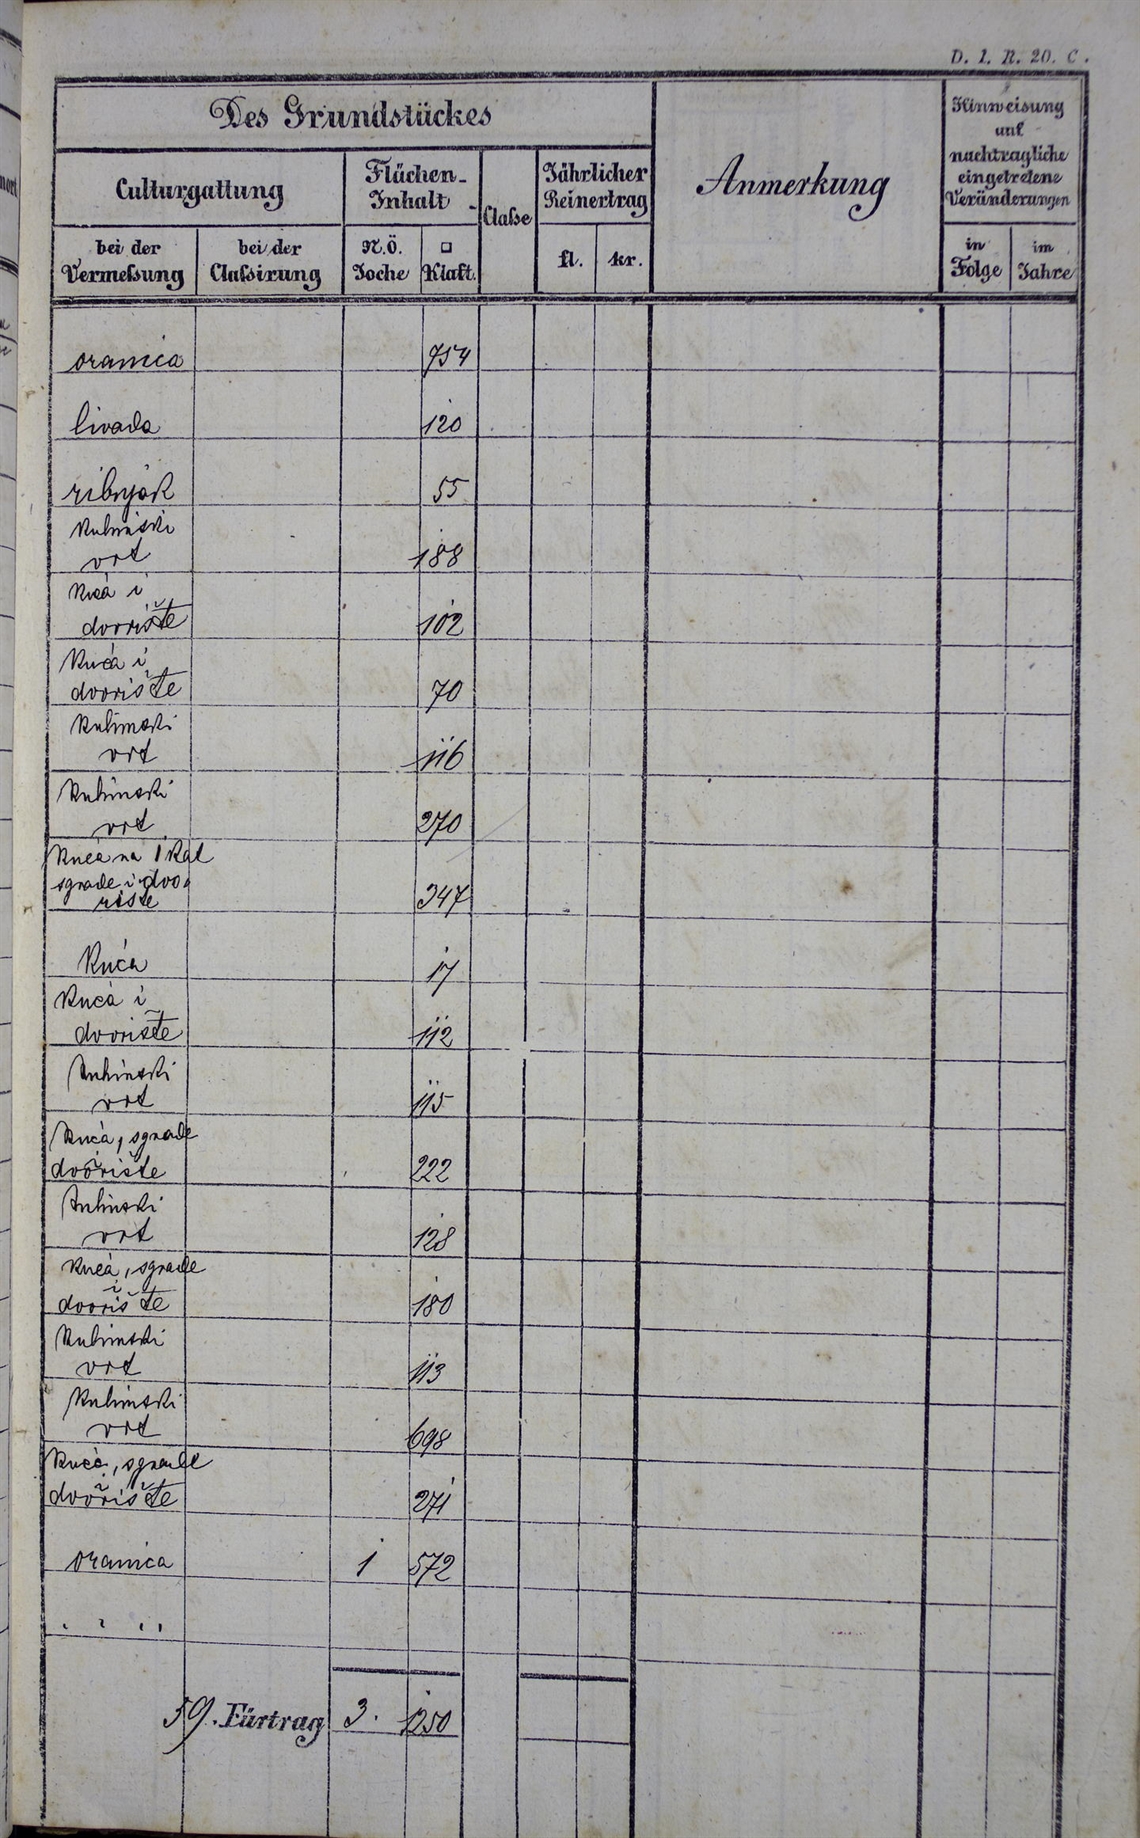 D. 1. R. 20. C.
Des Grundstückes
Culturgattung
Flächen-
Inhalt
Claſse
Jährlicher
Reinertrag
Anmerkung
Hinweisung
auf
nachtragliche
eingetretene
Veränderungen
bei der
Vermeſsung
bei der
Claſsirung
N.Ö.
Joche
□
Klaft.
fl.
kr.
in
Folge
im
Jahre
oranica 754
livada 120
ribnjak 55
Kuhinski
vrt 188
Kuća i
dvorište 102
Kuća i
dvorište 70
Kuhinski
vrt 116
Kuhinski
vrt 270
Kuća na 1 Kat
sgrade i dvo-
rište 347
Kuća 17
Kuća i
dvorište 112
Kuhinski
vrt 115
Kuća, sgrade
i
dvorište 222
Kuhinski
vrt 128
Kuća, sgrade
i
dvorište 180
Kuhinski
vrt 113
Kuhinski
vrt 698
Kuća, sgrade
i
dvorište 271
oranica 1 572
59. Fürtrag 3. 1250